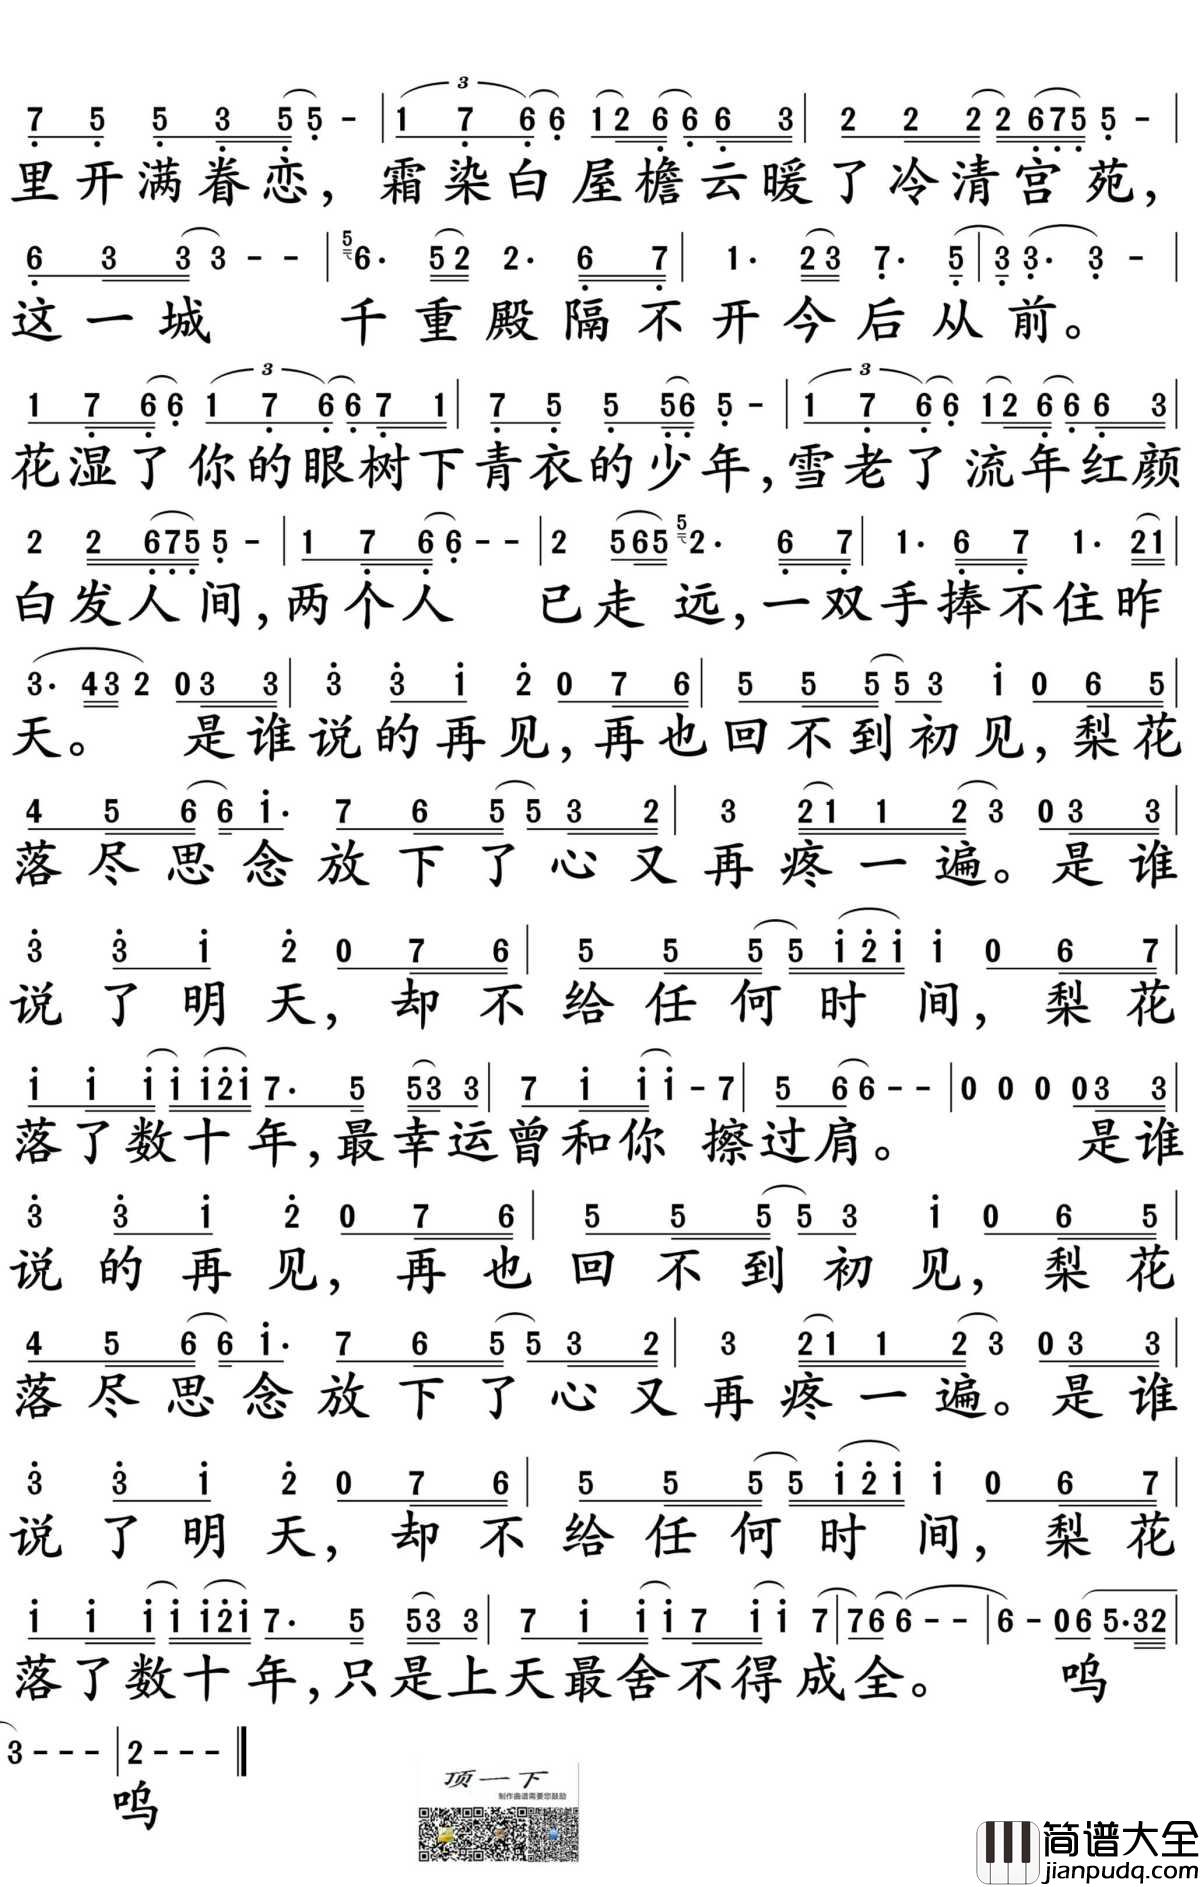 7 5 5 3 5 5 - | 1 7 6 6 1 2 6 6 6 3 | 2 2 2 2 6 7 5 5 - |
里开满眷恋，霜染白屋檐云暖了冷清宫苑，
6 3 3 3 - - | 5 6· 5 2 2· 6 7 | 1· 2 3 7· 5 | 3 3· 3 - |
这一城 千重殿隔不开今后从前。
1 7 6 6 1 7 6 6 7 1 | 7 5 5 5 6 5 - | 1 7 6 6 1 2 6 6 6 3 |
花湿了你的眼树下青衣的少年，雪老了流年红颜
2 2 6 7 5 5 - | 1 7 6 6 - - | 2 5 6 5 5 2· 6 7 | 1· 6 7 1· 2 1 |
白发人间，两个人 已走远，一双手捧不住昨
3· 4 3 2 0 3 3 | 3 3 1 2 0 7 6 | 5 5 5 5 3 1 0 6 5 |
天。 是谁说的再见，再也回不到初见，梨花
4 5 6 6 1· 7 6 5 5 3 2 | 3 2 1 1 2 3 0 3 3 |
落尽思念放下了心又再疼一遍。是谁
3 3 1 2 0 7 6 | 5 5 5 5 1 2 1 1 0 6 7 |
说了明天，却不给任何时间，梨花
1 1 1 1 1 2 1 7· 5 5 3 3 | 7 1 1 1 - 7 | 5 6 6 - - | 0 0 0 0 3 3 |
落了数十年，最幸运曾和你 擦过肩。 是谁
3 3 1 2 0 7 6 | 5 5 5 5 3 1 0 6 5 |
说的再见，再也回不到初见，梨花
4 5 6 6 1· 7 6 5 5 3 2 | 3 2 1 1 2 3 0 3 3 |
落尽思念放下了心又再疼一遍。是谁
3 3 1 2 0 7 6 | 5 5 5 5 1 2 1 1 0 6 7 |
说了明天，却不给任何时间，梨花
1 1 1 1 1 2 1 7· 5 5 3 3 | 7 1 1 1 7 1 1 7 | 7 6 6 - - | 6 - 0 6 5· 3 2 |
落了数十年，只是上天最舍不得成全。 呜
3 - - - | 2 - - - ‖
呜
顶一下
制作曲谱需要您鼓励
简谱大全
jianpudq.com